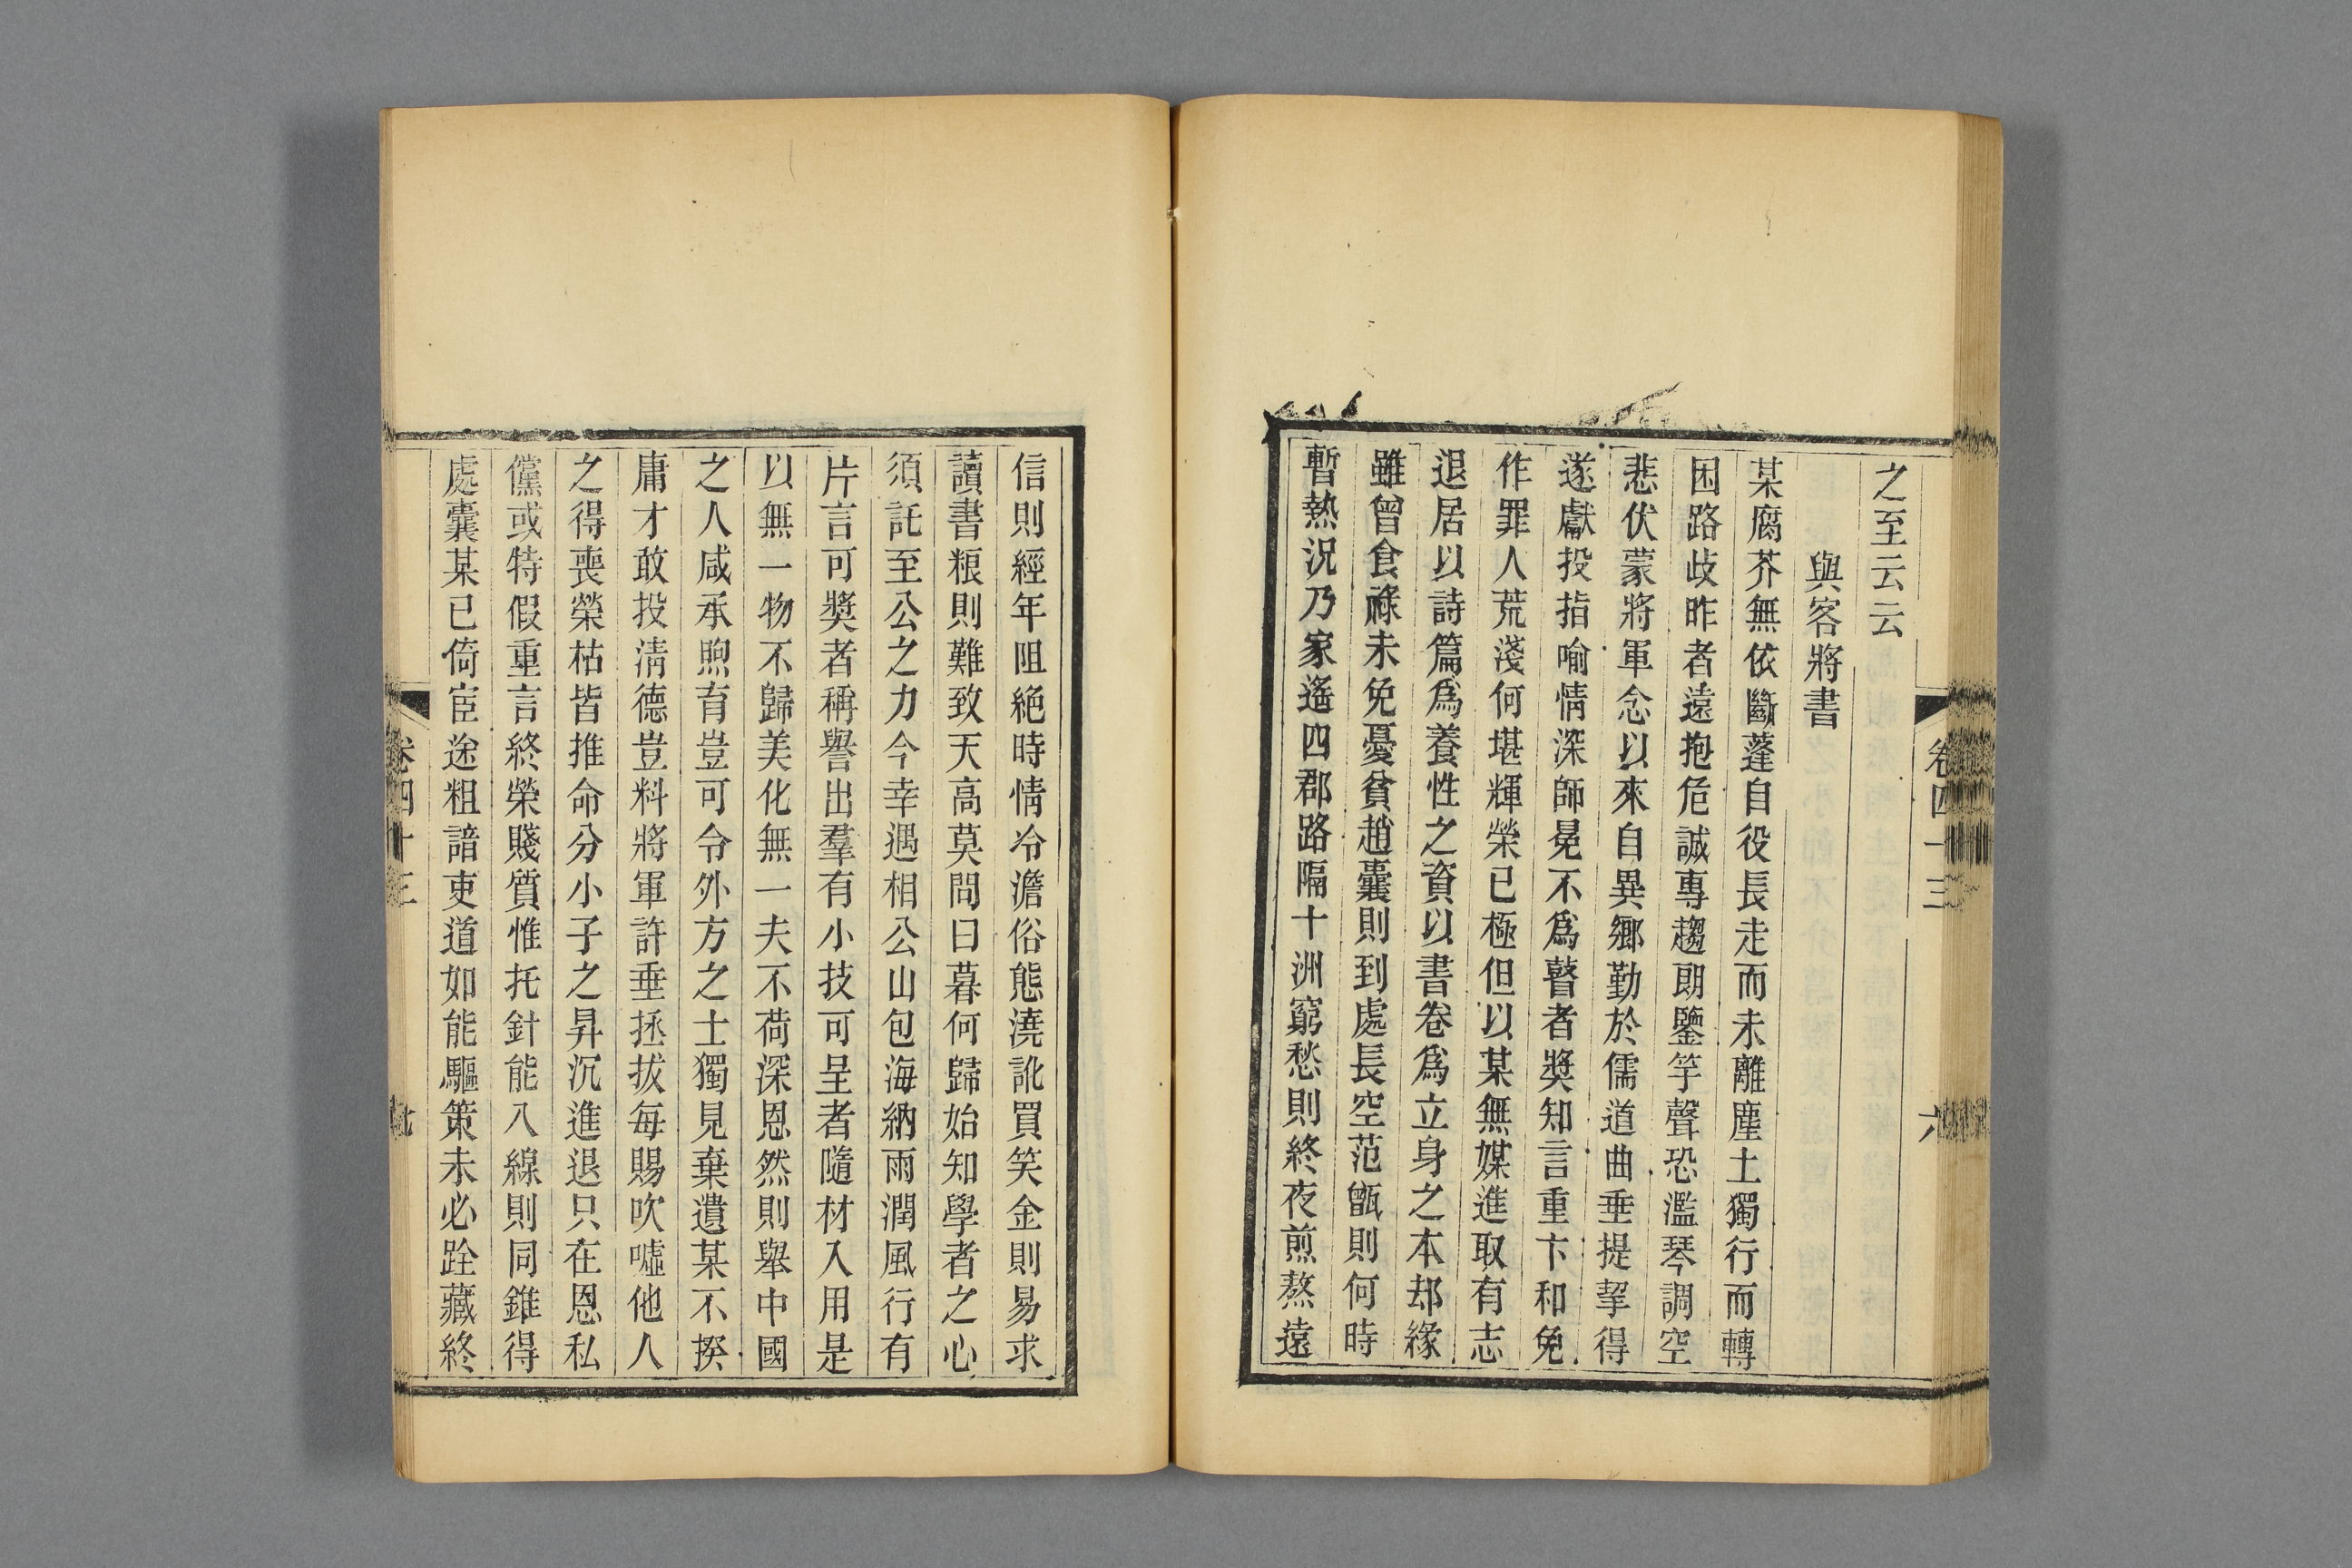 之至云云
與客將書
某腐芥無依斷蓬自役長走而未離塵土獨行而轉
困路歧昨者遠抱危誠專趨朗鑒竽聲恐濫琴調空
悲伏蒙將軍念以來自異鄉勤於儒道曲垂提挈得
遂獻投指喻情深師冕不爲瞽者獎知言重卞和免
作罪人荒淺何堪輝榮已極但以某無媒進取有志
退居以詩篇爲養性之資以書卷爲立身之本却緣
雖曾食祿未免憂貧趙囊則到處長空范甑則何時
暫熱況乃家遙四郡路隔十洲窮愁則終夜煎熬遠
信則經年阻絶時情冷澹俗態澆訛買笑金則易求
讀書粮則難致天高莫問日暮何歸始知學者之心
須託至公之力今幸遇相公山包海納雨潤風行有
片言可獎者稱譽出羣有小技可呈者隨材入用是
以無一物不歸美化無一夫不荷深恩然則舉中國
之人咸承煦育豈可令外方之士獨見棄遺某不揆
庸才敢投淸德豈料將軍許垂拯拔每賜吹噓他人
之得喪榮枯皆推命分小子之昇沉進退只在恩私
儻或特假重言終榮賤質惟托針能入線則同錐得
處囊某已倚宦途粗諳吏道如能驅策未必跧藏終
卷四十三
卷四十三
六